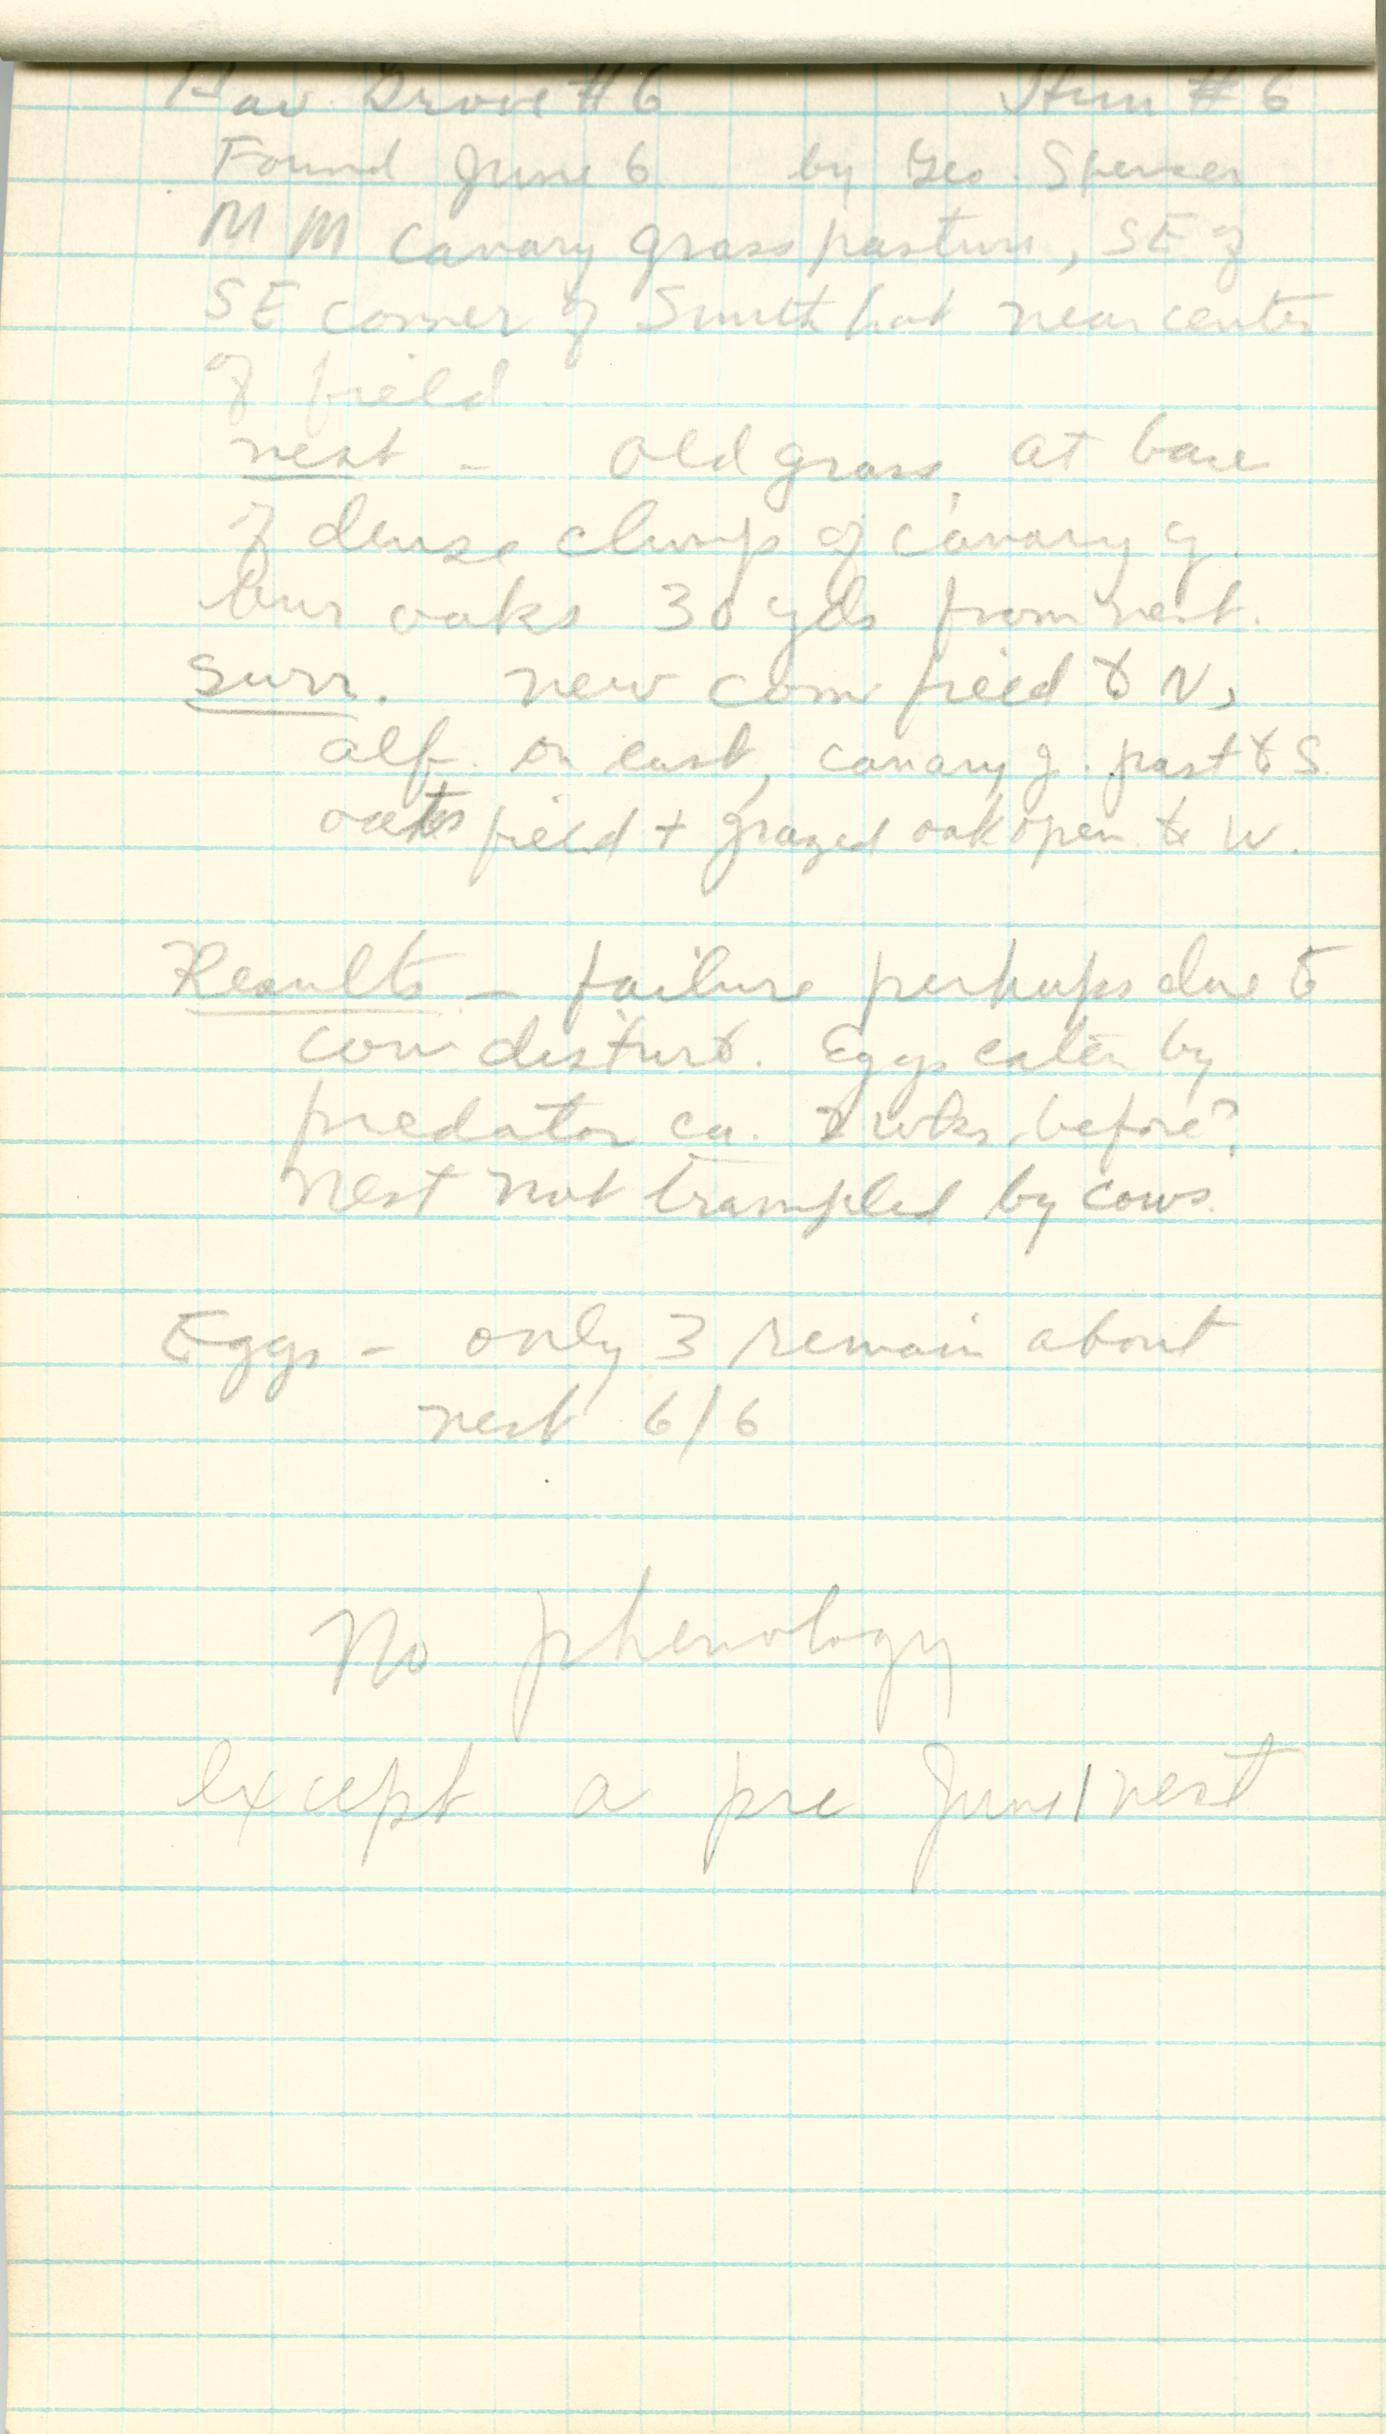 Fav. Grove #6 Hun #6
Found June 6 by Geo. Spencer
M M canary grass pasture, SE of
SE corner of Smith lot near center
of field.
nest - old grass, at base
of dense clump of canary g.
bur oaks 30 yds from nest.
Surr. new corn field to N,
alf. on east, canary g. past to S.
oats field + grazed oak open. to W.
Results - failure perhaps due to
cow disturb. Eggs eaten by
predator ca. 2 wks. before?
Nest not trampled by cows.
Eggs - only 3 remain about
nest 6/6
No phenology
except a pre June 1 nest